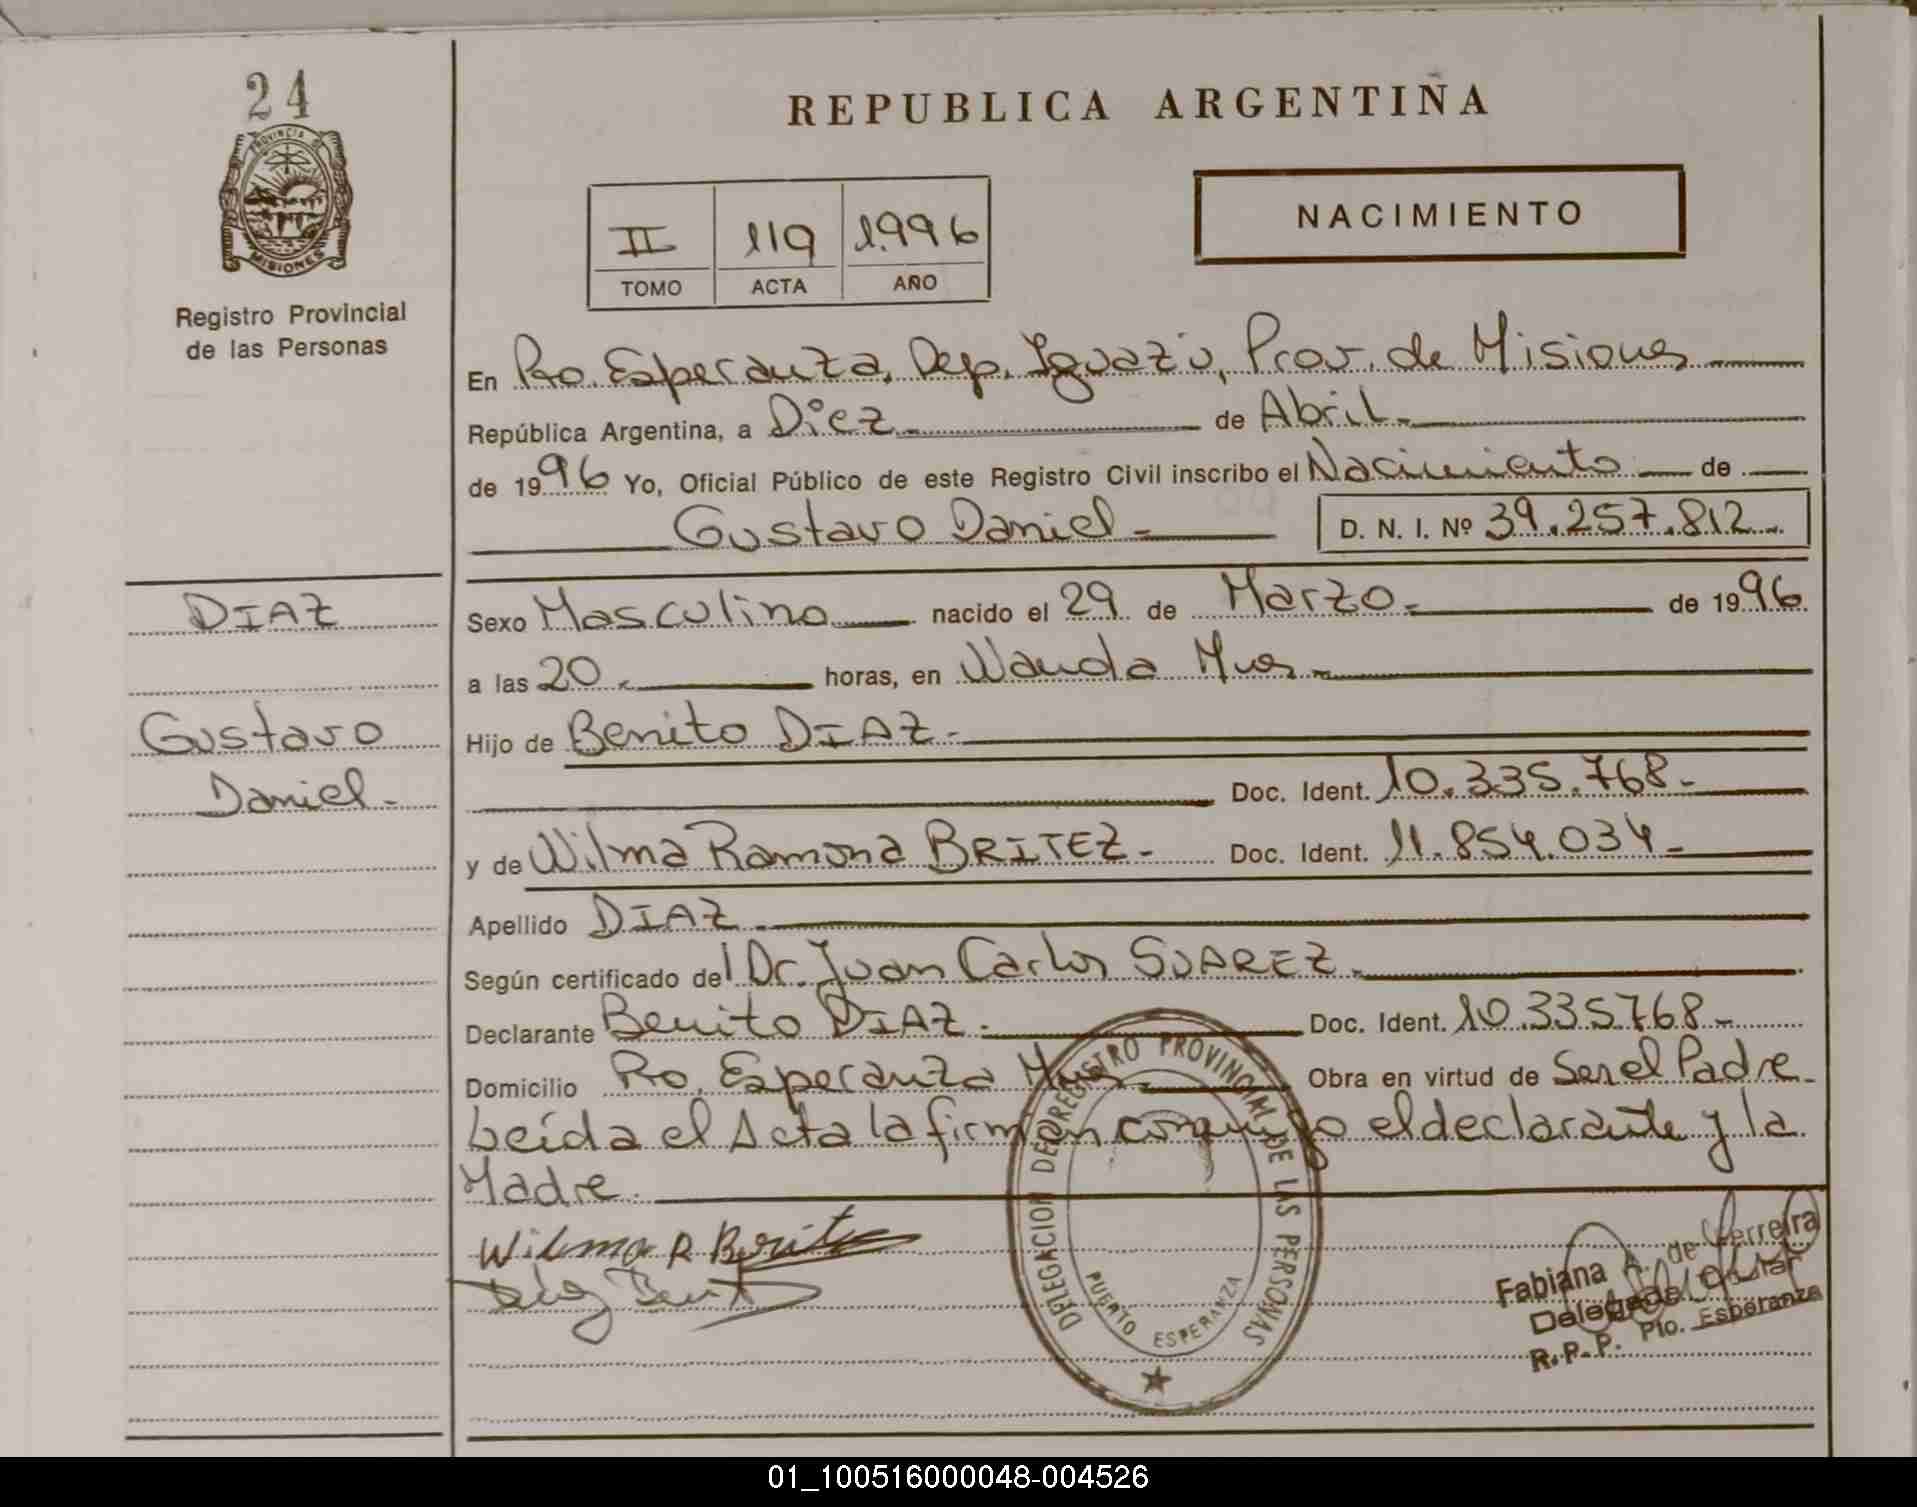 24
PROVINCIA DE
MISIONES
Registro Provincial
de las Personas
REPUBLICA ARGENTINA
II 119 1.996
TOMO ACTA AÑO
NACIMIENTO
En Pto. Esperanza, Dep. Iguazú, Prov. de Misiones
República Argentina, a Diez de Abril
de 1996 Yo, Oficial Público de este Registro Civil inscribo el Nacimiento de
Gustavo Daniel D. N. I. Nº 39.257.812
DIAZ
Gustavo
Daniel
Sexo Masculino nacido el 29 de Marzo de 1996
a las 20 horas, en Wanda Mnes
Hijo de Benito DIAZ
Doc. Ident. 10.335.768
y de Wilma Ramona BRITEZ Doc. Ident. 11.854.034
Apellido DIAZ
Según certificado del Dr. Juan Carlos SUAREZ
Declarante Benito DIAZ Doc. Ident. 10.335768
Domicilio Pto. Esperanza Mnes Obra en virtud de Ser el Padre
Leída el Acta la firman conmigo el declarante y la
Madre
Wilma R Britez
DELEGACION DE REGISTRO PROVINCIAL DE LAS PERSONAS
PUERTO ESPERANZA
Fabiana A. de Ferreira
Delegada Titular
R.P.P. Pto. Esperanza
01_100516000048-004526